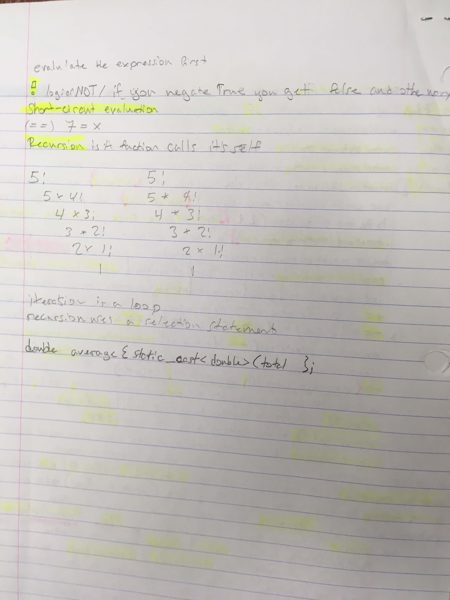 evaluate the expression first
! logical NOT / if you negate True you get false and other way
short-circuit evaluation
(==) 7 = x
Recursion is a function calls itsself
5! 5!
5 * 4! 5 * 4!
4 * 3! 4 * 3!
3 * 2! 3 * 2!
2 * 1! 2 * 1!
1 1
iteration is a loop
recursion uses a selection statement
double average { static_cast<double>(total };